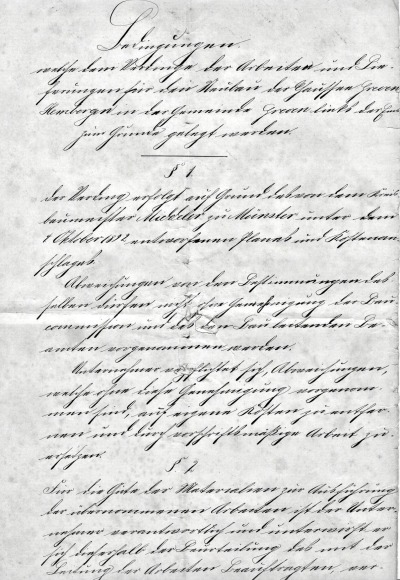 Bedingungen
welche dem Verdinge der Arbeiten und Lie-
ferungen für den Neubau der Chaussee Greven
Nemberge in der Gemeinde Greven links der Ems
zum Grunde gelegt werden.
§ 1.
Der Verding erfolgt auf Grund des von dem Kreis-
baumeister zu Münster unter dem
Oktober entworfenen Planes und Kostenan-
schlages.
Abweichungen von den Bestimmungen des-
selben dürfen nicht ohne Genehmigung der Bau-
commission und des den Bau leitenden Be-
amten vorgenommen werden.
Unternehmer verpflichtet sich, Abweichungen,
welche ohne diese Genehmigung vorgenom-
men sind, auf eigene Kosten zu entfer-
nen und durch vorschriftsmäßige Arbeit zu
ersetzen.
§ 2.
Für die Güte der Materialien zur Ausführung
der übernommenen Arbeiten ist der Unter-
nehmer verantwortlich und unterwirft er
sich dieserhalb der Beurteilung des mit der
Leitung der Arbeiten Beauftragten, ver-